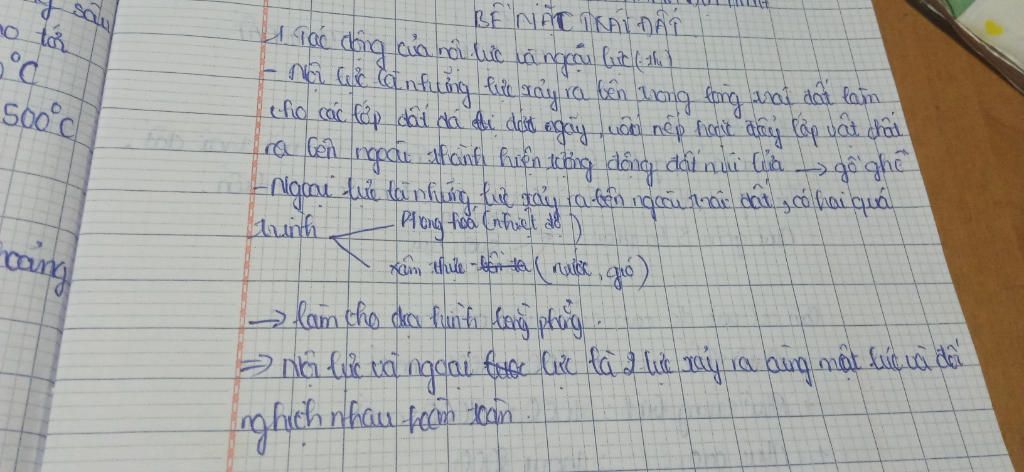 sâu
tới
°C
500°C
hoảng
BỀ MẶT TRÁI ĐẤT
1. Tác động của nội lực và ngoại lực (:th)
- Nội lực là những lực xảy ra bên trong lòng trái đất làm
cho các lớp đất đá đứt gãy, uốn nếp hoặc đẩy lớp vật chất
ra bên ngoài thành hiện tượng động đất núi lửa → gồ ghề
- Ngoại lực là những lực xảy ra bên ngoài trái đất, có hai quá
trình
Phong hoá (nhiệt độ)
xâm thực (nước, gió)
→ làm cho địa hình bằng phẳng.
⇒ Nội lực và ngoại lực là 2 lực xảy ra cùng một lúc và đối
nghịch nhau hoàn toàn.